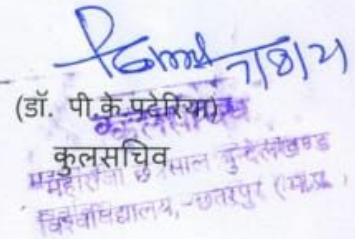 7/8/21
(डॉ. पी.के.पटेरिया)
कुलसचिव
कुलसचिव
महाराजा छत्रसाल बुन्देलखण्ड
विश्वविद्यालय, छतरपुर (म.प्र.)